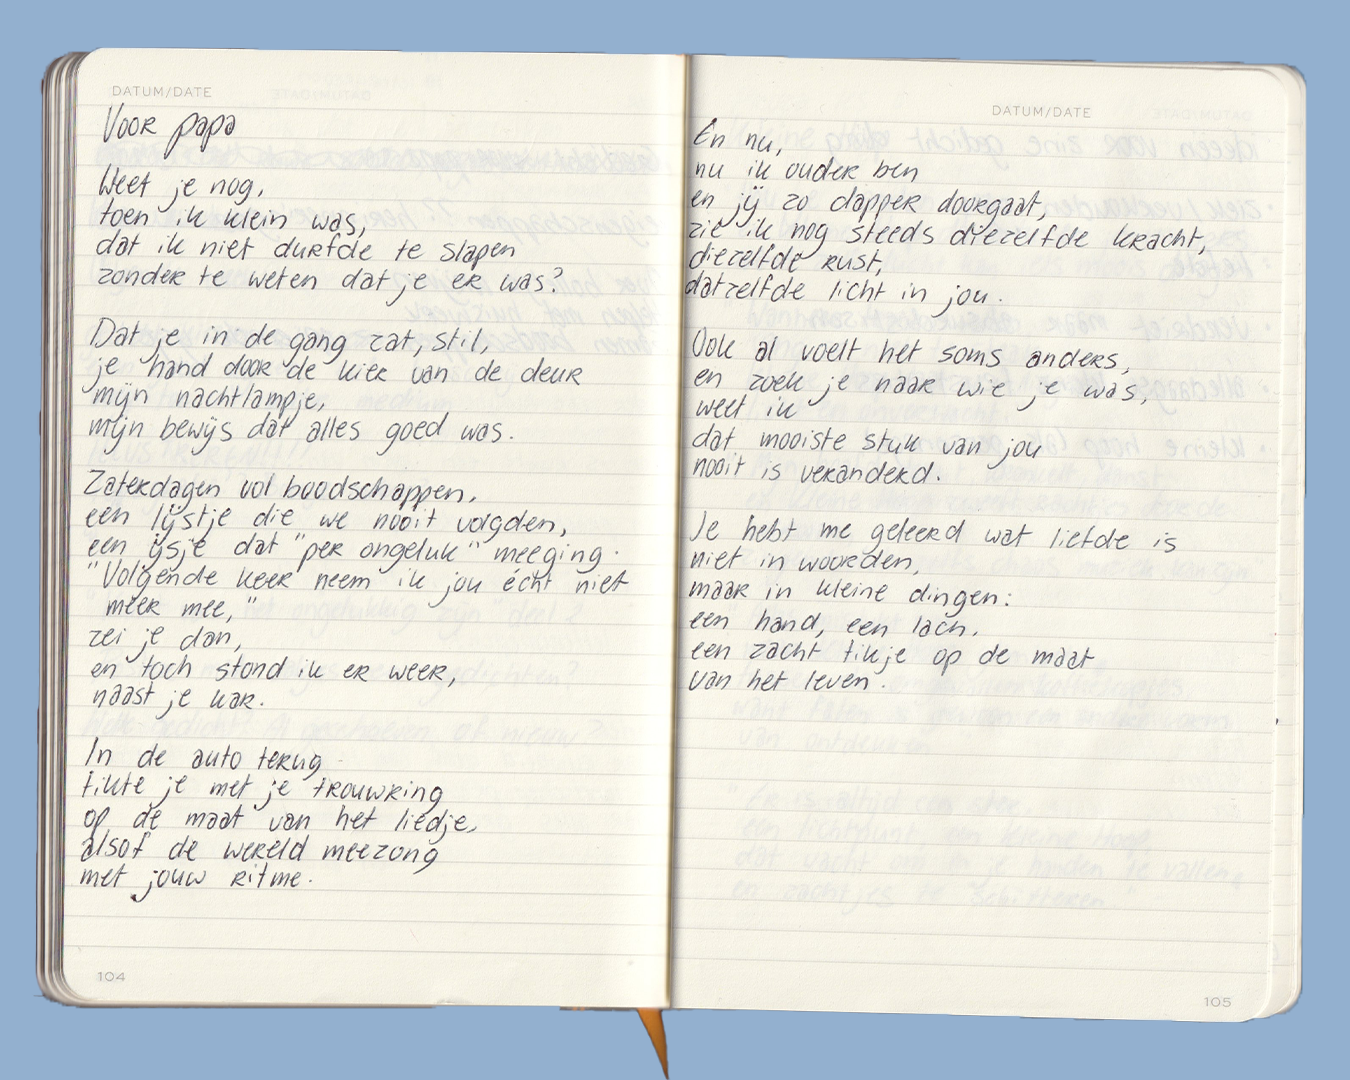 DATUM/DATE
Voor papa
Weet je nog,
toen ik klein was,
dat ik niet durfde te slapen
zonder te weten dat je er was?
Dat je in de gang zat, stil,
je hand door de kier van de deur
mijn nachtlampje,
mijn bewijs dat alles goed was.
Zaterdagen vol boodschappen,
een lijstje die we nooit volgden,
een ijsje dat "per ongeluk" meeging.
"Volgende keer neem ik jou écht niet
meer mee,"
zei je dan,
en toch stond ik er weer,
naast je kar.
In de auto terug
tikte je met je trouwring
op de maat van het liedje,
alsof de wereld meezong
met jouw ritme.
104
DATUM/DATE
En nu,
nu ik ouder ben
en jij zo dapper doorgaat,
zie ik nog steeds diezelfde kracht,
diezelfde rust,
datzelfde licht in jou.
Ook al voelt het soms anders,
en zoek je naar wie je was,
weet ik
dat mooiste stuk van jou
nooit is veranderd.
Je hebt me geleerd wat liefde is
niet in woorden,
maar in kleine dingen:
een hand, een lach,
een zacht tikje op de maat
van het leven.
105